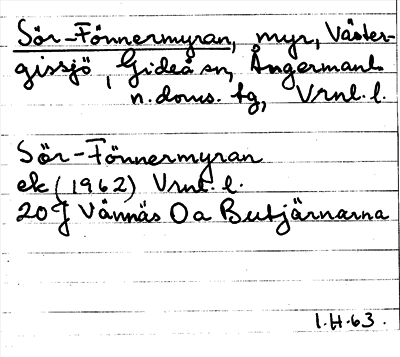 Sör-Fönnermyran, myr, Väster-
gissjö, Gideå sn, Ångermanl.
n. doms. tg, Vrnl. l.
Sör-Fönnermyran
ek (1962) Vrnl. l.
20J Vännäs 0a Butjärnarna
1.H.63.